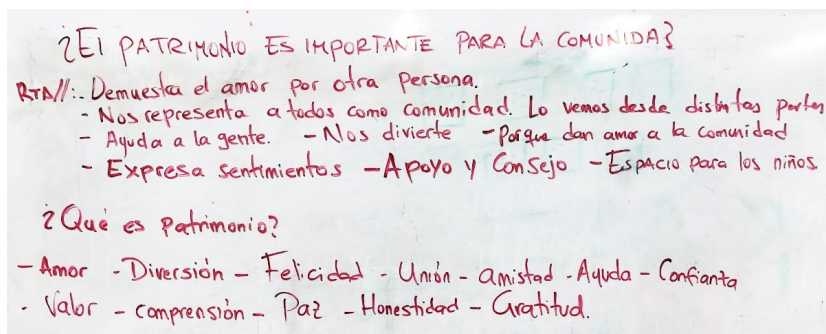 ¿El PATRIMONIO ES IMPORTANTE PARA LA COMUNIDA?
RTA//:. Demuestra el amor por otra persona.
- Nos representa a todos como comunidad. Lo vemos desde distintas partes
- Ayuda a la gente. - Nos divierte - Porque dan amor a la comunidad
- Expresa sentimientos - Apoyo y Consejo - Espacio para los niños.
¿Qué es Patrimonio?
- Amor - Diversión - Felicidad - Unión - amistad - Ayuda - Confianza
- Valor - comprensión - Paz - Honestidad - Gratitud.